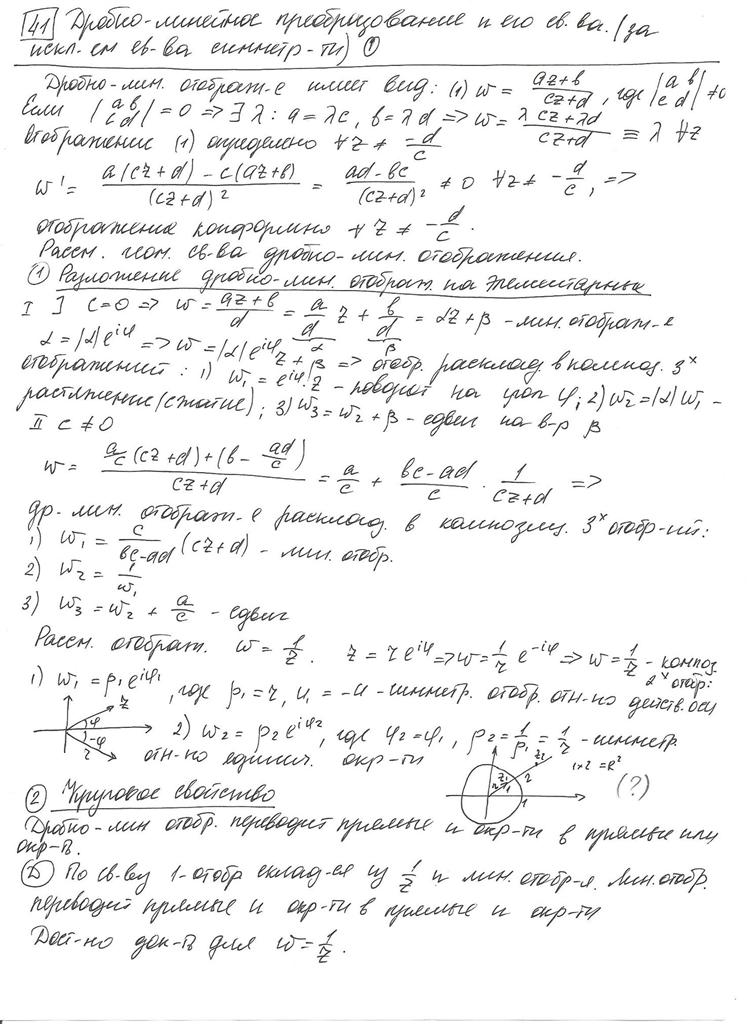 41 Дробно-линейное преобразование и его св. ва. (за
искл-ем св-ва симметр-ти) ①
Дробно-лин. отображ-е имеет вид: (1) w = (az+b)/(cz+d), где |a b; c d| ≠ 0
Если |a b; c d| = 0 => ∃ λ: a = λc, b = λd => w = (λcz+λd)/(cz+d) ≡ λ ∀z
Отображение (1) определено ∀z ≠ -d/c
w' = (a(cz+d) - c(az+b))/(cz+d)² = (ad-bc)/(cz+d)² ≠ 0 ∀z ≠ -d/c, =>
отображение конформно ∀z ≠ -d/c.
Рассм. геом. св-ва дробно-лин. отображения.
① Разложение дробно-лин. отображ. на элементарные
I ] c=0 => w = (az+b)/d = a/d z + b/d = αz+β - лин. отображ-е
α = |α|e^{iφ} => w = |α|e^{iφ}z + β => отобр. расклад. в композ. 3ˣ
отображений: 1) w₁ = e^{iφ}·z - поворот на угол φ; 2) w₂ = |α|w₁ -
растяжение (сжатие); 3) w₃ = w₂ + β - сдвиг на в-р β
II c ≠ 0
w = (a/c (cz+d) + (b - ad/c))/(cz+d) = a/c + (bc-ad)/c · 1/(cz+d) =>
др-лин. отображ-е расклад. в композиц. 3ˣ отобр-ий:
1) w₁ = c/(bc-ad) (cz+d) - лин. отобр.
2) w₂ = 1/w₁
3) w₃ = w₂ + a/c - сдвиг
Рассм. отображ. w = 1/z. z = re^{iφ} => w = 1/r e^{-iφ} => w = 1/z - композ.
2ˣ отобр:
1) w₁ = ρ₁e^{iφ₁}, где ρ₁ = r, φ₁ = -φ - симметр. отобр. отн-но действ. оси
z φ -φ
2) w₂ = ρ₂e^{iφ₂}, где φ₂ = φ₁, ρ₂ = 1/ρ₁ = 1/r - симметр.
отн-но единич. окр-ти
z₁ z₂ 1 r₁·r₂ = R² (?)
② Круговое свойство
Дробно-лин отобр. переводит прямые и окр-ти в прямые или
окр-ть.
Ⓓ По св-ву 1-отобр склад-ся из 1/z и лин. отобр-я. Лин. отобр.
переводит прямые и окр-ти в прямые и окр-ти
Дост-но док-ть для w = 1/z.